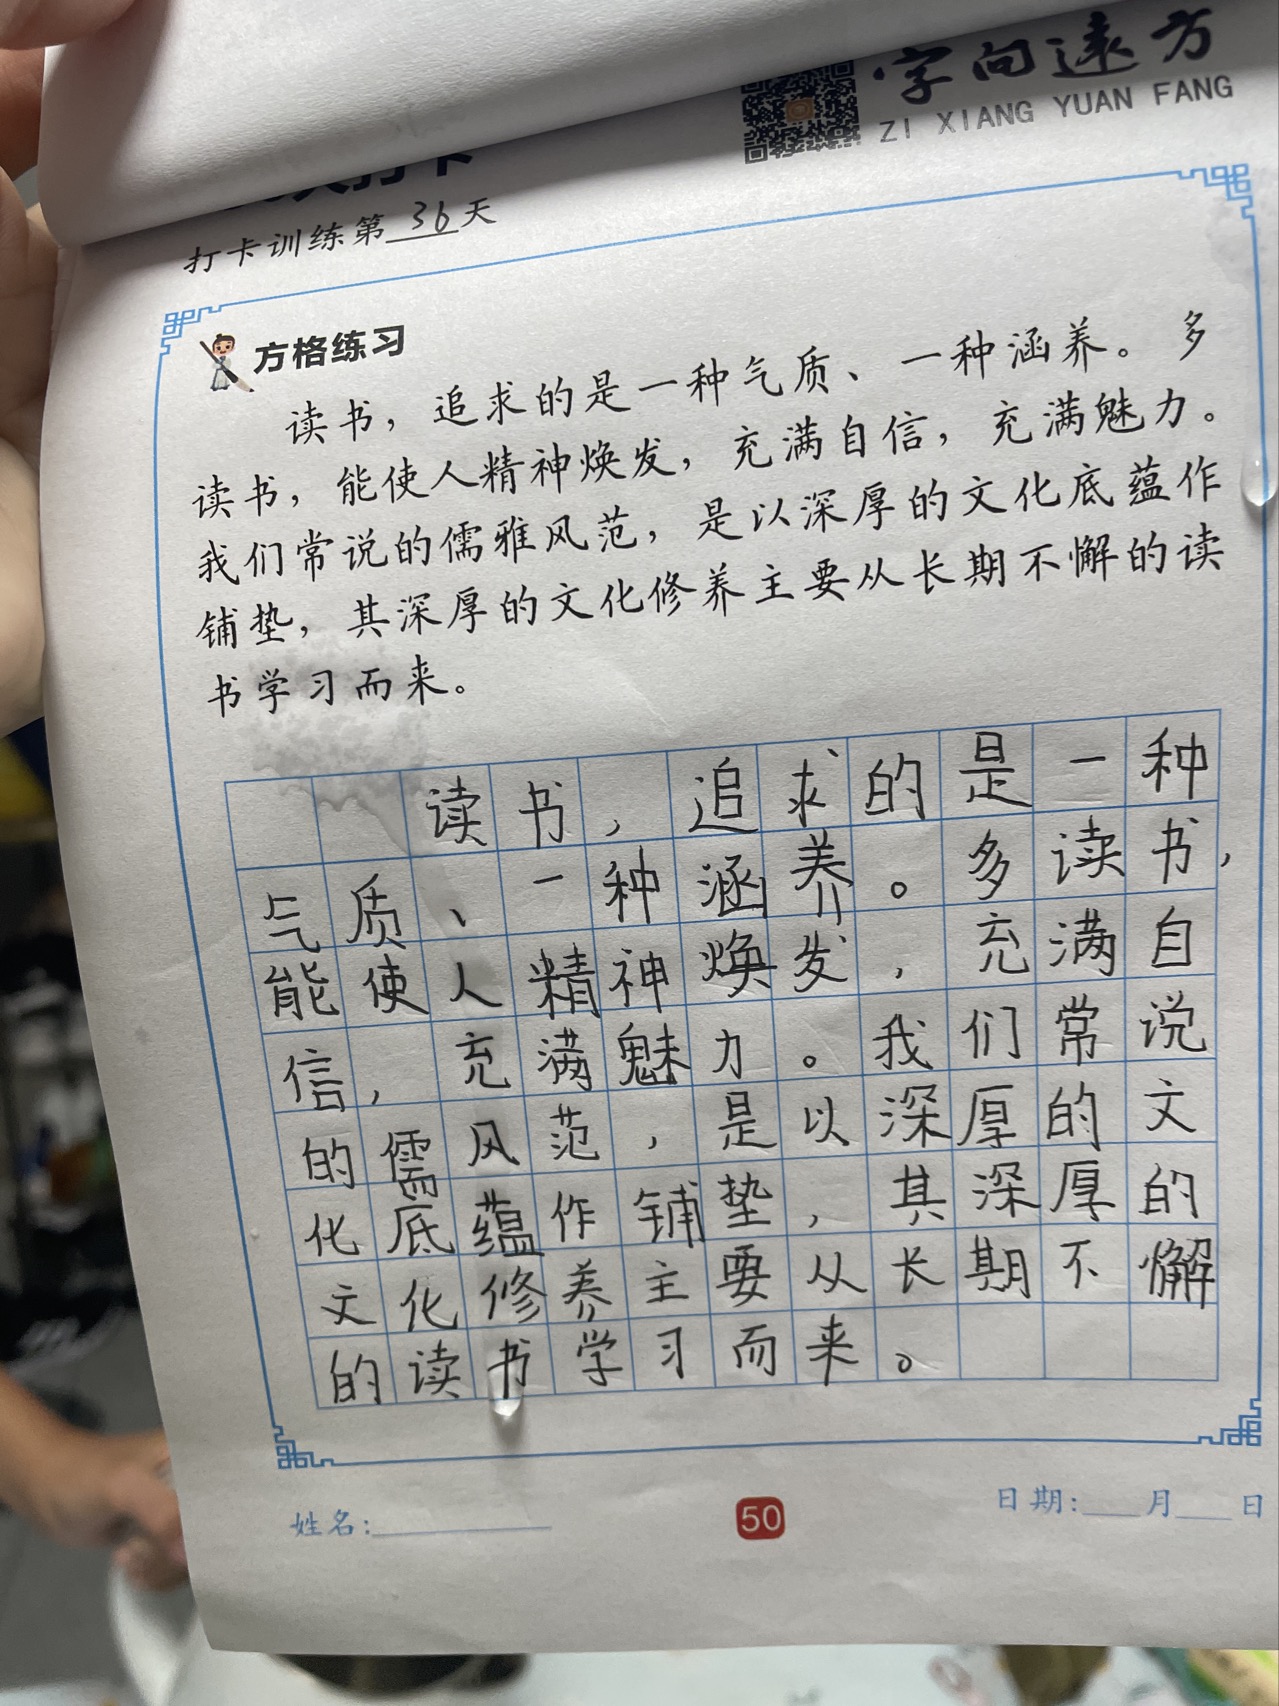 字向远方
ZI XIANG YUAN FANG
打卡
打卡训练第36天
方格练习
读书，追求的是一种气质、一种涵养。多
读书，能使人精神焕发，充满自信，充满魅力。
我们常说的儒雅风范，是以深厚的文化底蕴作
铺垫，其深厚的文化修养主要从长期不懈的读
书学习而来。
读书，追求的是一种
气质、一种涵养。多读书，
能使人精神焕发，充满自
信，充满魅力。我们常说
的儒风范，是以深厚的文
化底蕴作铺垫，其深厚的
文化修养主要从长期不懈
的读书学习而来。
姓名：
50
日期： 月 日